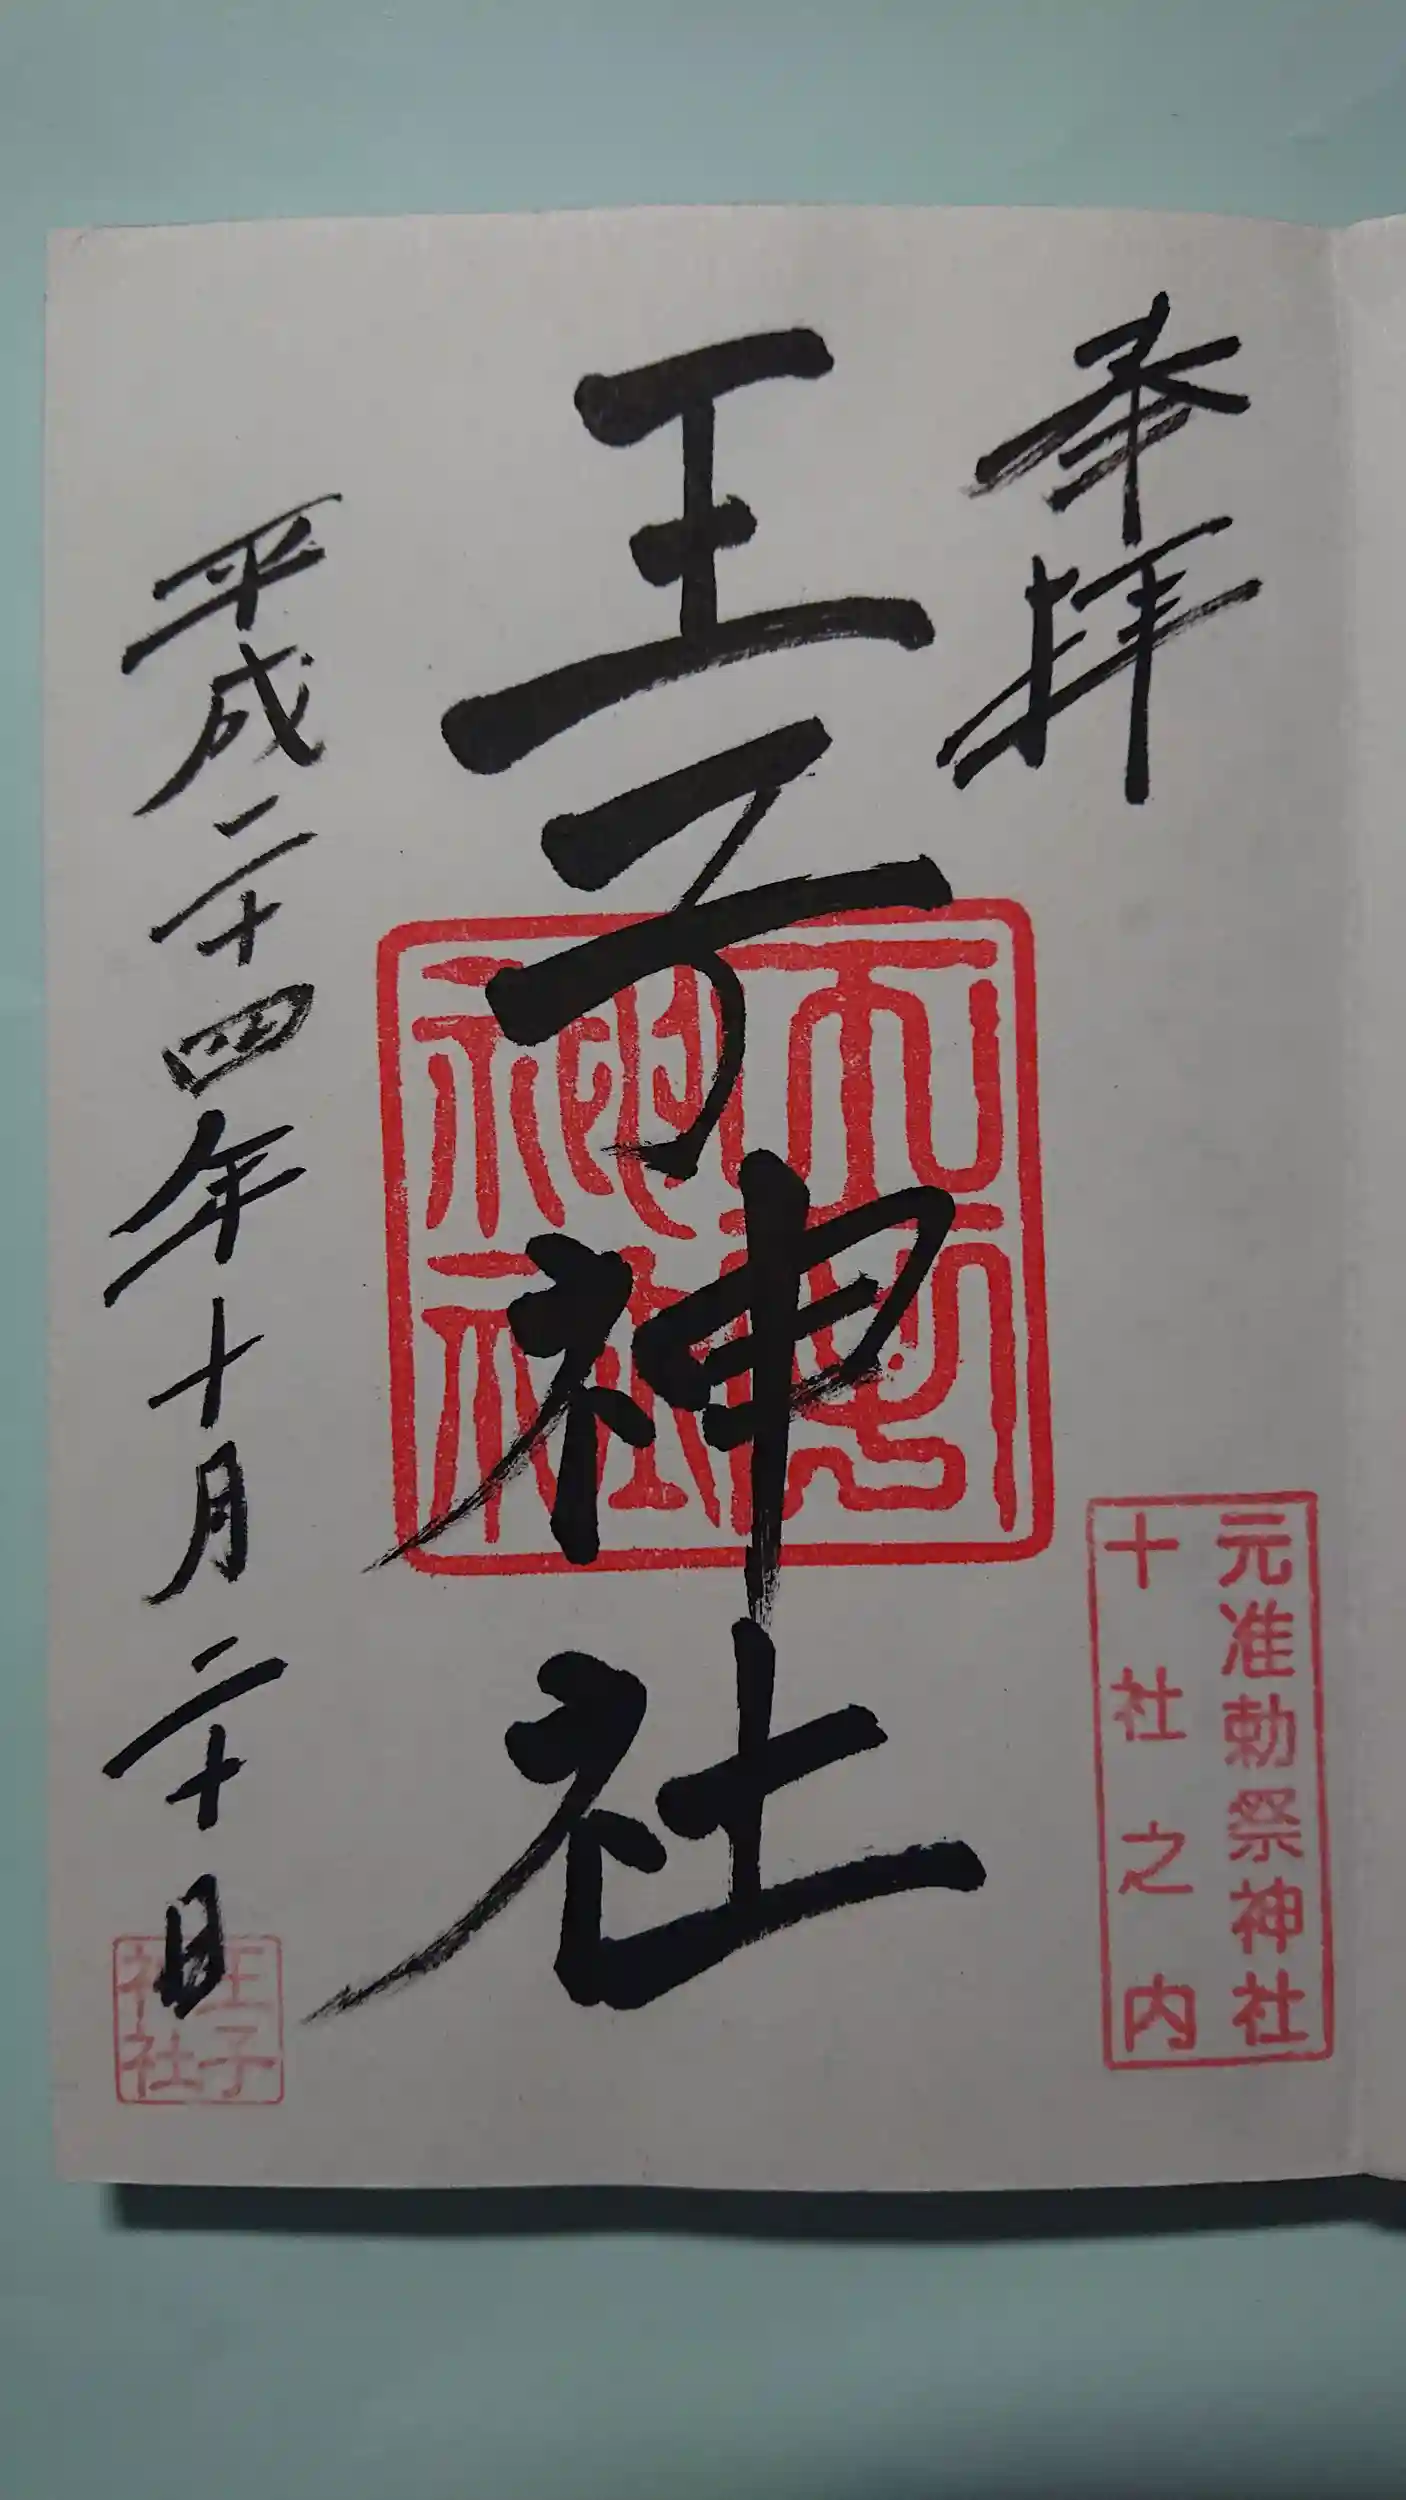 奉拝
元准勅祭神社
十社之内
王子神社
平成二十四年十月二十日
王子
神社